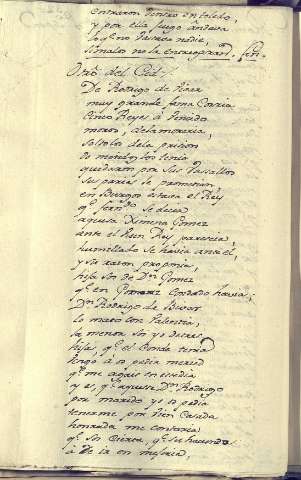 entraron dentro en toledo,
y por ella fuego andava
no la entregaran. fin.
Otro del Cid.
De Rodrigo de Vivar
muy grande fama corria
cinco Reyes à vencido
moros, de la moreria,
soltolos de la prision
do metidos los tenia
quedaron por sus vasallos
sus parias le prometian,
en Burgos estava el Rey
qe. se decia
aquesa Ximena Gomez
ante el buen Rey parecia,
humillado se havia ante el,
y su razon proponia,
hija soi de Dn. Gomez
qe. en Condado havia,
Dn. Rodrigo de Bivar
lo mató con valentia,
la menor soi yo de tres
hijas qe. el Conde tenia
vengo à os pedir merced
qe. me agais en este dia
y es, qe. aqueste Dn. Rodrigo
por marido yo os pedia
tenerme, por bien casada
honrada me contaria
qe. soi cierta, qe. su hacienda
à de ir en mejoria,